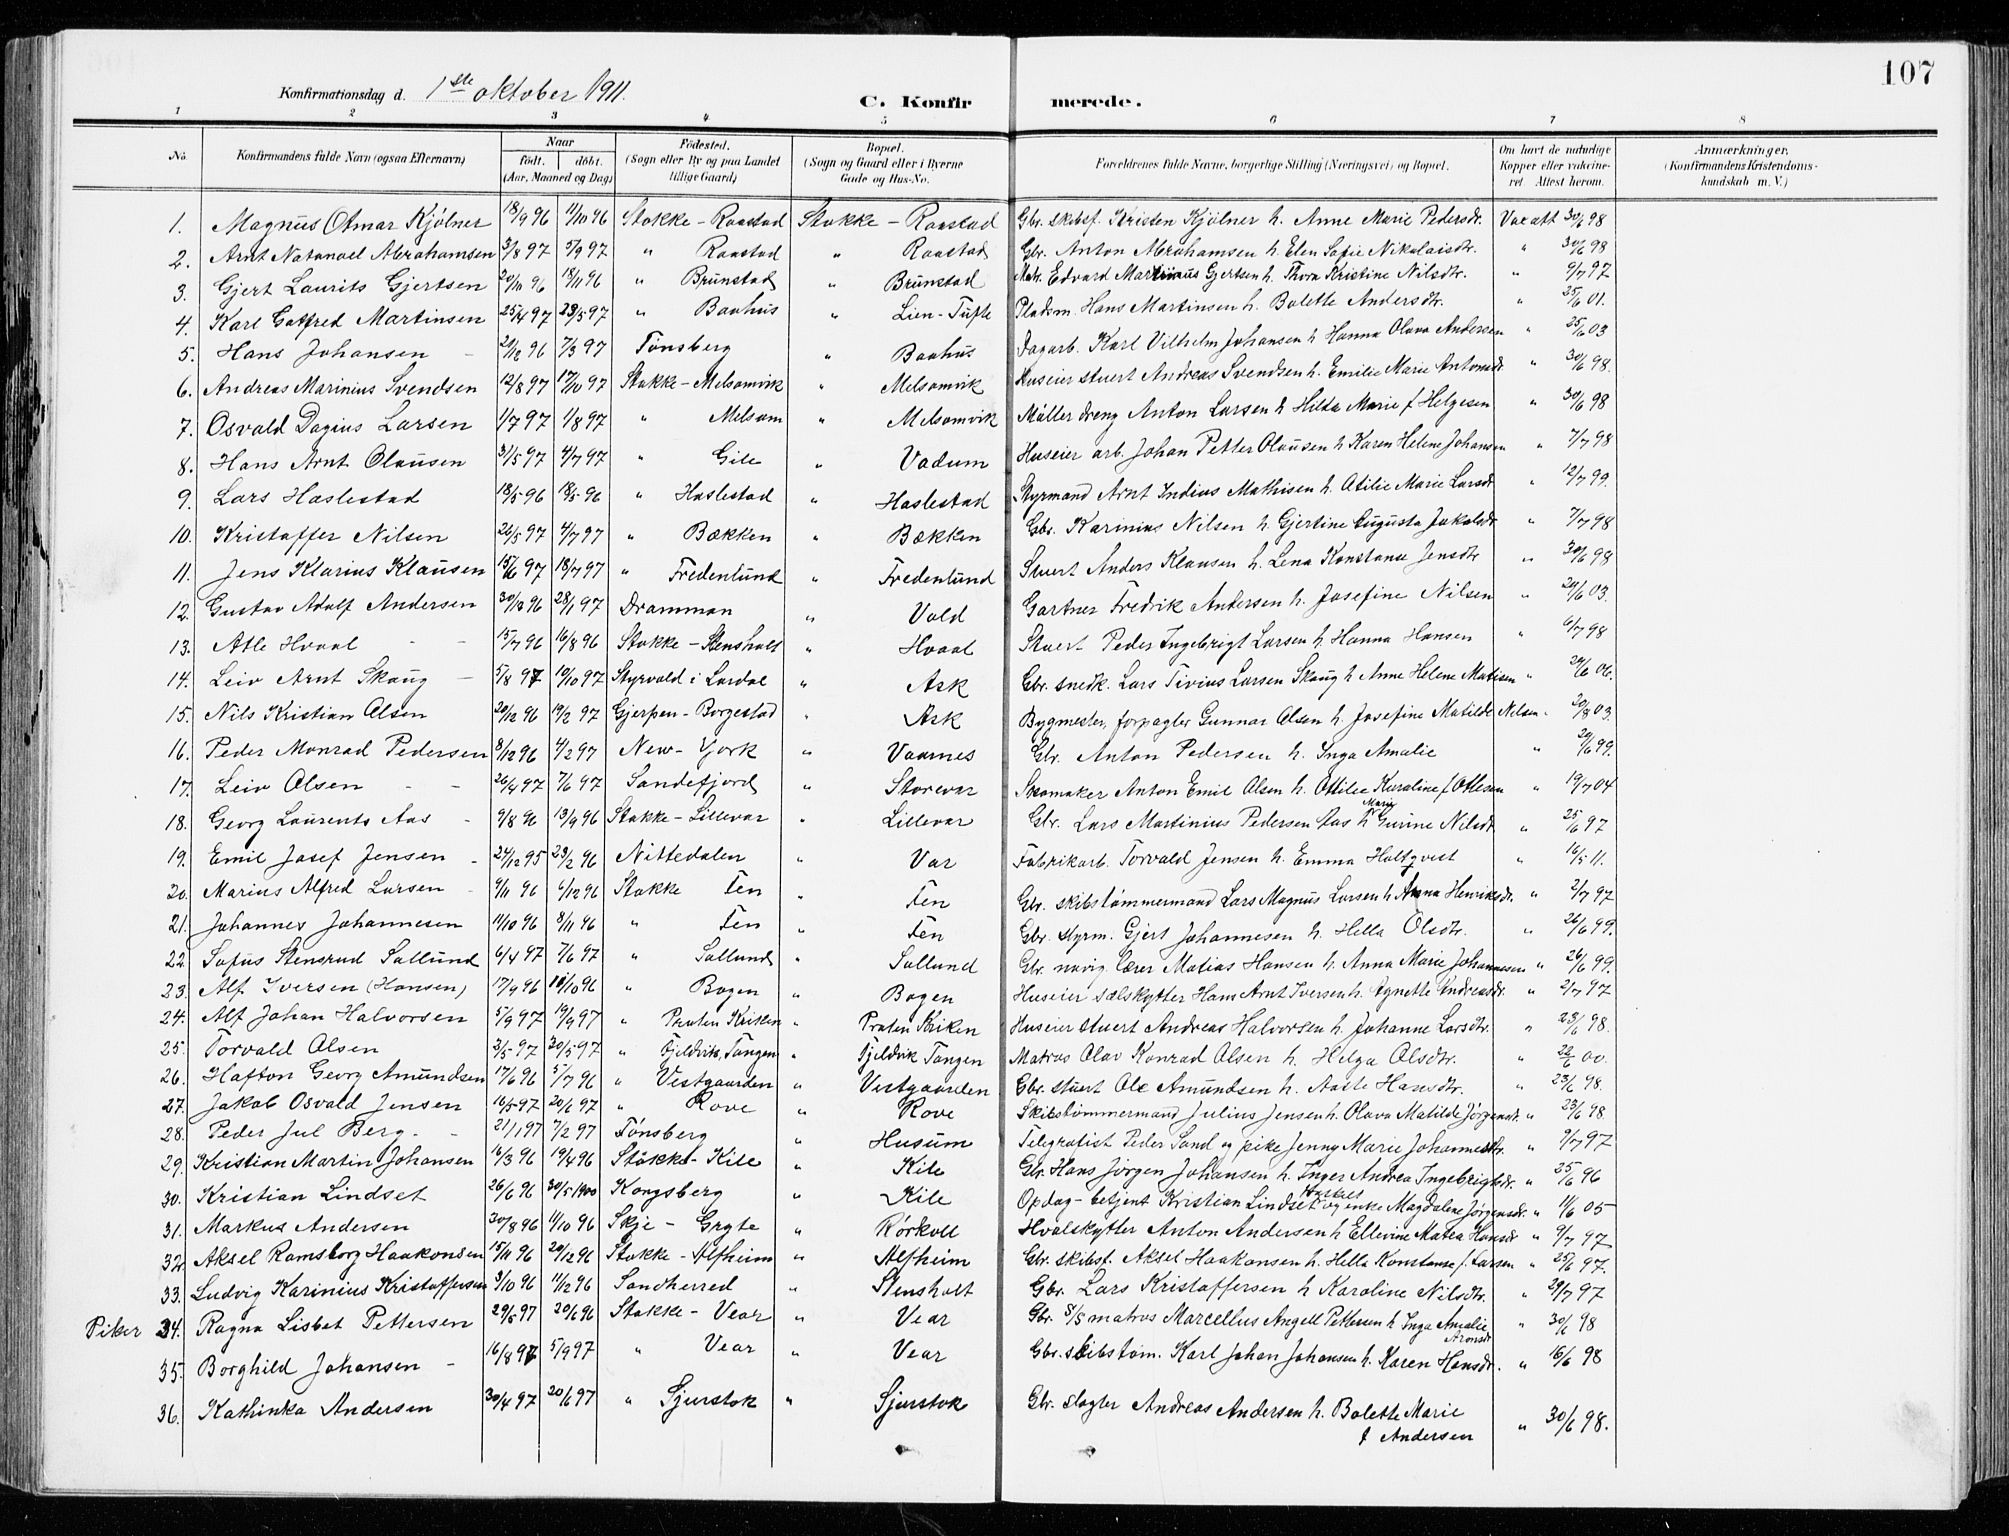 107
Konfirmationsdag d. 1ste oktober 1911.
C. Konfirmerede.
1 2 3 4 5 6 7 8
No. Konfirmandens fulde Navn (ogsaa Efternavn) Naar født. døbt. (Aar, Maaned og Dag) Fødested. (Sogn eller By og paa Landet tillige Gaard) Bopæl. (Sogn og Gaard eller i Byerne Gade og Hus-No. Forældrenes fulde Navne, borgerlige Stilling (Næringsvei) og Bopæl. Om havt de naturlige Kopper eller vakcineret. Attest herom. Anmærkninger, (Konfirmandens Kristendomskundskab m. V.)
1. Magnus Otmar Kjølner 18/9 96 11/10 96 Stokke - Raastad Stokke - Raastad Gbr. skibsf. Kristen Kjølner h. Anne Marie Pedersdr. Vax att 30/6 98
2. Arnt Natanael Abrahamsen 3/8 97 5/9 97 " Raastad " Raastad Gbr. Anton Abrahamsen h. Elen Sofie Nikolaisdtr. " 30/6 98
3. Gjert Laurits Gjertsen 20/10 96 18/11 96 " Brunstad " Brunstad Matr. Edvard Martinius Gjertsen h. Thora Kristine Nilsdtr. " 9/7 97
4. Karl Gotfred Martinsen 25/4 97 23/5 97 " Baahus " Lien-Tufte Pladsm. Hans Martinsen h. Bolette Andersdtr. " 25/6 01.
5. Hans Johansen - 20/12 96 7/3 97 Tønsberg " Baahus Dagarb. Karl Vilhelm Johansen h Hanna Olava Andersen " 25/6 03
6. Andreas Marinius Svendsen 12/8 97 17/10 97 Stokke - Melsomvik " Melsomvik Huseier stuert Andreas Svendsen h. Emilie Marie Antonsdr " 30/6 98.
7. Osvald Dagius Larsen 1/7 97 1/8 97 " Melsom " Melsomvik Møller dreng Anton Larsen h Hilda Marie f Helgesen " 30/6 98
8. Hans Arnt Olausen 31/5 97 4/7 97 " Gile " Vadum Huseier arb. Johan Petter Olausen h Karen Helene Johansen " 7/7 98
9. Lars Haslestad 18/5 96 18/5 96 " Haslestad " Haslestad Styrmand Arnt Indius Mathisen h. Otilie Marie Larsdr " 12/7 99.
10. Kristoffer Nilsen 26/5 97 4/7 97 " Bækken " Bækken Gbr. Karinius Nilsen h. Gjertine Augusta Jakobsdr " 7/7 98
11. Jens Klarius Klausen 15/6 97 18/7 97 " Fredenlund " Fredenlund Stuert Anders Klausen h. Lena Konstanse Jensdtr " 30/6 98
12. Gustav Adolf Andersen 30/10 96 28/1 97 Drammen " Vold Gartner Fredrik Andersen h. Josefine Nilsen " 20/6 03.
13. Atle Hvaal - - 15/7 96 16/8 96 Stokke - Stensholt " Hvaal Stuert Peder Ingebrigt Larsen h. Hanna Hansen " 6/7 98
14. Leiv Arnt Skaug - 5/8 97 10/10 97 Styrvold i Lardal " Ask Gbr. snedk. Lars Tivius Larsen Skaug h Anne Helene Matisen " 20/6 06.
15. Nils Kristian Olsen 20/12 96 19/2 97 Gjerpen - Borgestad " Ask Bygmester, forpagter Gunnar Olsen h. Josefine Matilde Nilsen " 20/8 03.
16. Peder Monrad Pedersen 8/12 96 4/2 97 New-York " Vaarnes Gbr. Anton Pedersen h. Inga Amalie " 20/6 99.
17. Leiv Olsen - - 26/4 97 7/6 97 Sandefjord " Storevar Skomaker Anton Emil Olsen h. Ottilie Karoline f. Ottesen " 19/7 04
18. Georg Laurents Aas - 9/8 96 13/9 96 Stokke - Lillevar " Lillevar Gbr. Lars Martinius Pedersen Aas h Marie Gurine Nilsdt " 25/6 97
19. Emil Josef Jensen - 24/12 95 23/2 96 Nittedalen " Var Fabrikarb. Torvald Jensen h. Emma Holtqvist " 16/5 11.
20. Marius Alfred Larsen - 9/11 96 6/12 96 Stokke Fen " Fen Gbr. skibstømmermand Lars Magnus Larsen h Anna Henriksdr. " 2/7 97
21. Johannes Johannesen 11/10 96 8/11 96 " Fen " Fen Gbr. styrm. Gjert Johannesen h. Hella Olsdtr. " 26/6 99.
22. Sofus Stensrud Sollund 6/4 97 7/6 97 " Sollund " Sollund Gbr. navig. lærer Matias Hansen h. Anna Marie Johannesen " 26/6 99.
23. Alf Iversen (Hansen) 17/9 96 18/10 96 " Bogen " Bogen Huseier sælskytter Hans Arnt Iversen h. Agnette Andreasdr. " 2/7 97
24. Alf Johan Halvorsen 5/9 97 19/9 97 " Praten Kriken " Praten Kriken Huseier stuert Andreas Halvorsen h. Johanne Larsdtr. " 23/6 98.
25. Torvald Olsen 3/5 97 30/5 97 " Fjeldvik, Tangen " Fjeldvik Tangen Matros Olav Konrad Olsen h. Helga Olsdtr. " 22/6 00.
26. Hafton Georg Amundsen 17/6 96 5/7 96 " Vestgaarden " Vestgaarden Gbr. stuert Ole Amundsen h. Aaste Hansdtr. " 23/6 98.
27. Jakob Osvald Jensen 16/5 97 20/6 97 " Rove " Rove Skibstømmermand Julius Jensen h. Olava Matilde Jørgensdr. " 23/6 98.
28. Peder Jul Berg. - 21/1 97 7/2 97 Tønsberg " Husum Telegrafist Peder Sand og pike Jenny Marie Johannesdtr. " 9/7 97
29. Kristian Martin Johansen 16/3 96 19/4 96 Stokke - Kile " Kile Gbr. Hans Jørgen Johansen h. Inger Andrea Ingebrigtsdr. " 25/6 96
30. Kristian Lindset 26/6 96 30/5 1900 Kongsberg " Kile Opdag-betjent Kristian Lindset og enke Magdalene Jørgensdr. " 11/6 05
31. Markus Andersen 30/8 96 11/10 96 Skje - Grgte " Rørkoll Hvalskytter Anton Andersen h Ellevine Matea Hansdr " 9/7 97
32. Aksel Ramsborg Haakonsen 15/11 96 20/12 96 Stokke - Alfheim " Alfheim Gbr. skibsf. Aksel Haakonsen h. Hella Konstanse f. Larsen " 25/6 97.
33. Ludvig Karinius Kristoffersen 3/10 96 11/12 96 Sandherred " Stensholt Gbr. Lars Kristoffersen h Karoline Nilsdtr. " 29/7 97
Piker 34. Ragna Lisbet Pettersen 29/5 97 20/6 96 Stokke - Vear " Vear Gbr. S/S matros Marcellus Angell Pettersen h Inga Amalie Aronsdr " 30/6 98
35. Borghild Johansen - 16/8 97 5/9 97 " Vear " Vear Gbr. skibstøm. Karl Johan Johansen h. Karen Hansdr. " 16/6 98
36. Kathinka Andersen 30/4 97 20/6 97 " Sjuestok " Sjuestok Gbr. slagter Andreas Andersen h. Bolette Marie f Andersen " 30/6 98.